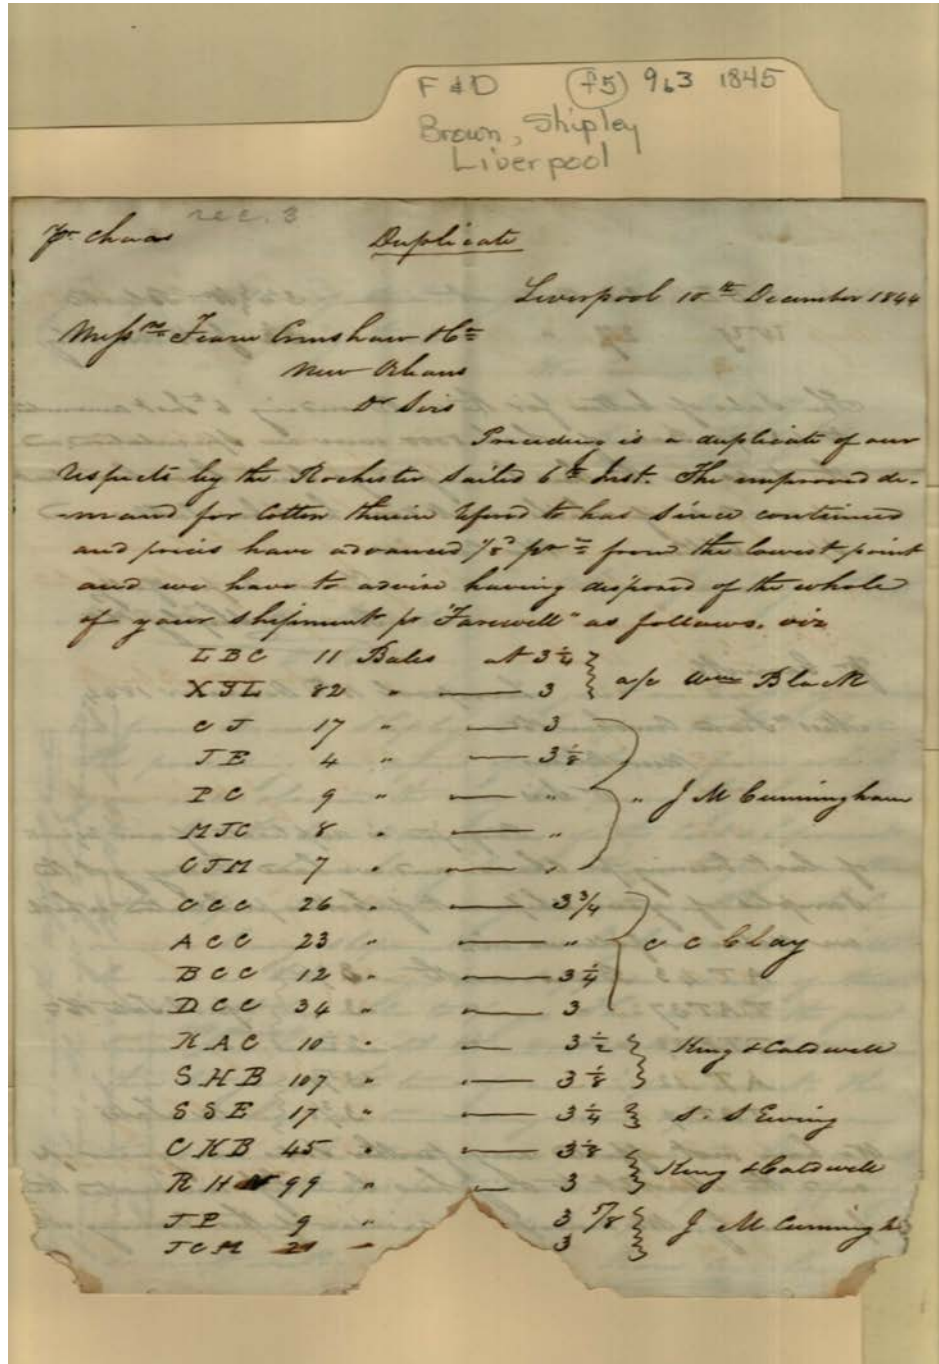 F & D (f5) 963 1845
Brown, Shipley
Liverpool
rec. 3
Duplicate
Liverpool 10th December 1844
Messrs Fearn Crenshaw & Co
New Orleans
Dr Sirs
Preceding is a duplicate of our
respects by the Rochester sailed 6th Inst. The improved de-
-mand for Cotton therein referd to has since continued
and prices have advanced 1/8d pr from the lowest point
and we have to advise having disposed of the whole
of your shipment pr "Farewell" as follows. viz
LBC 11 Bales at 3 1/4
XSL 82 " — 3 a/c Wm Black
CJ 17 " — 3
JE 4 " — 3 1/8
PC 9 " — " " J M Cunningham
MJC 8 " — "
CJM 7 " — "
CCC 26 " — 3 3/4
ACC 23 " — " C C Clay
BCC 12 " — 3 1/4
DCC 34 " — 3
KAC 10 " — 3 1/2 King & Caldwell
SHB 107 " — 3 1/8
SSE 17 " — 3 1/4 S. S Ewing
CKB 45 " — 3 1/8
RH 99 " — 3 King & Caldwell
JP 9 " 3 5/8 J M Cunningh
JCM 3